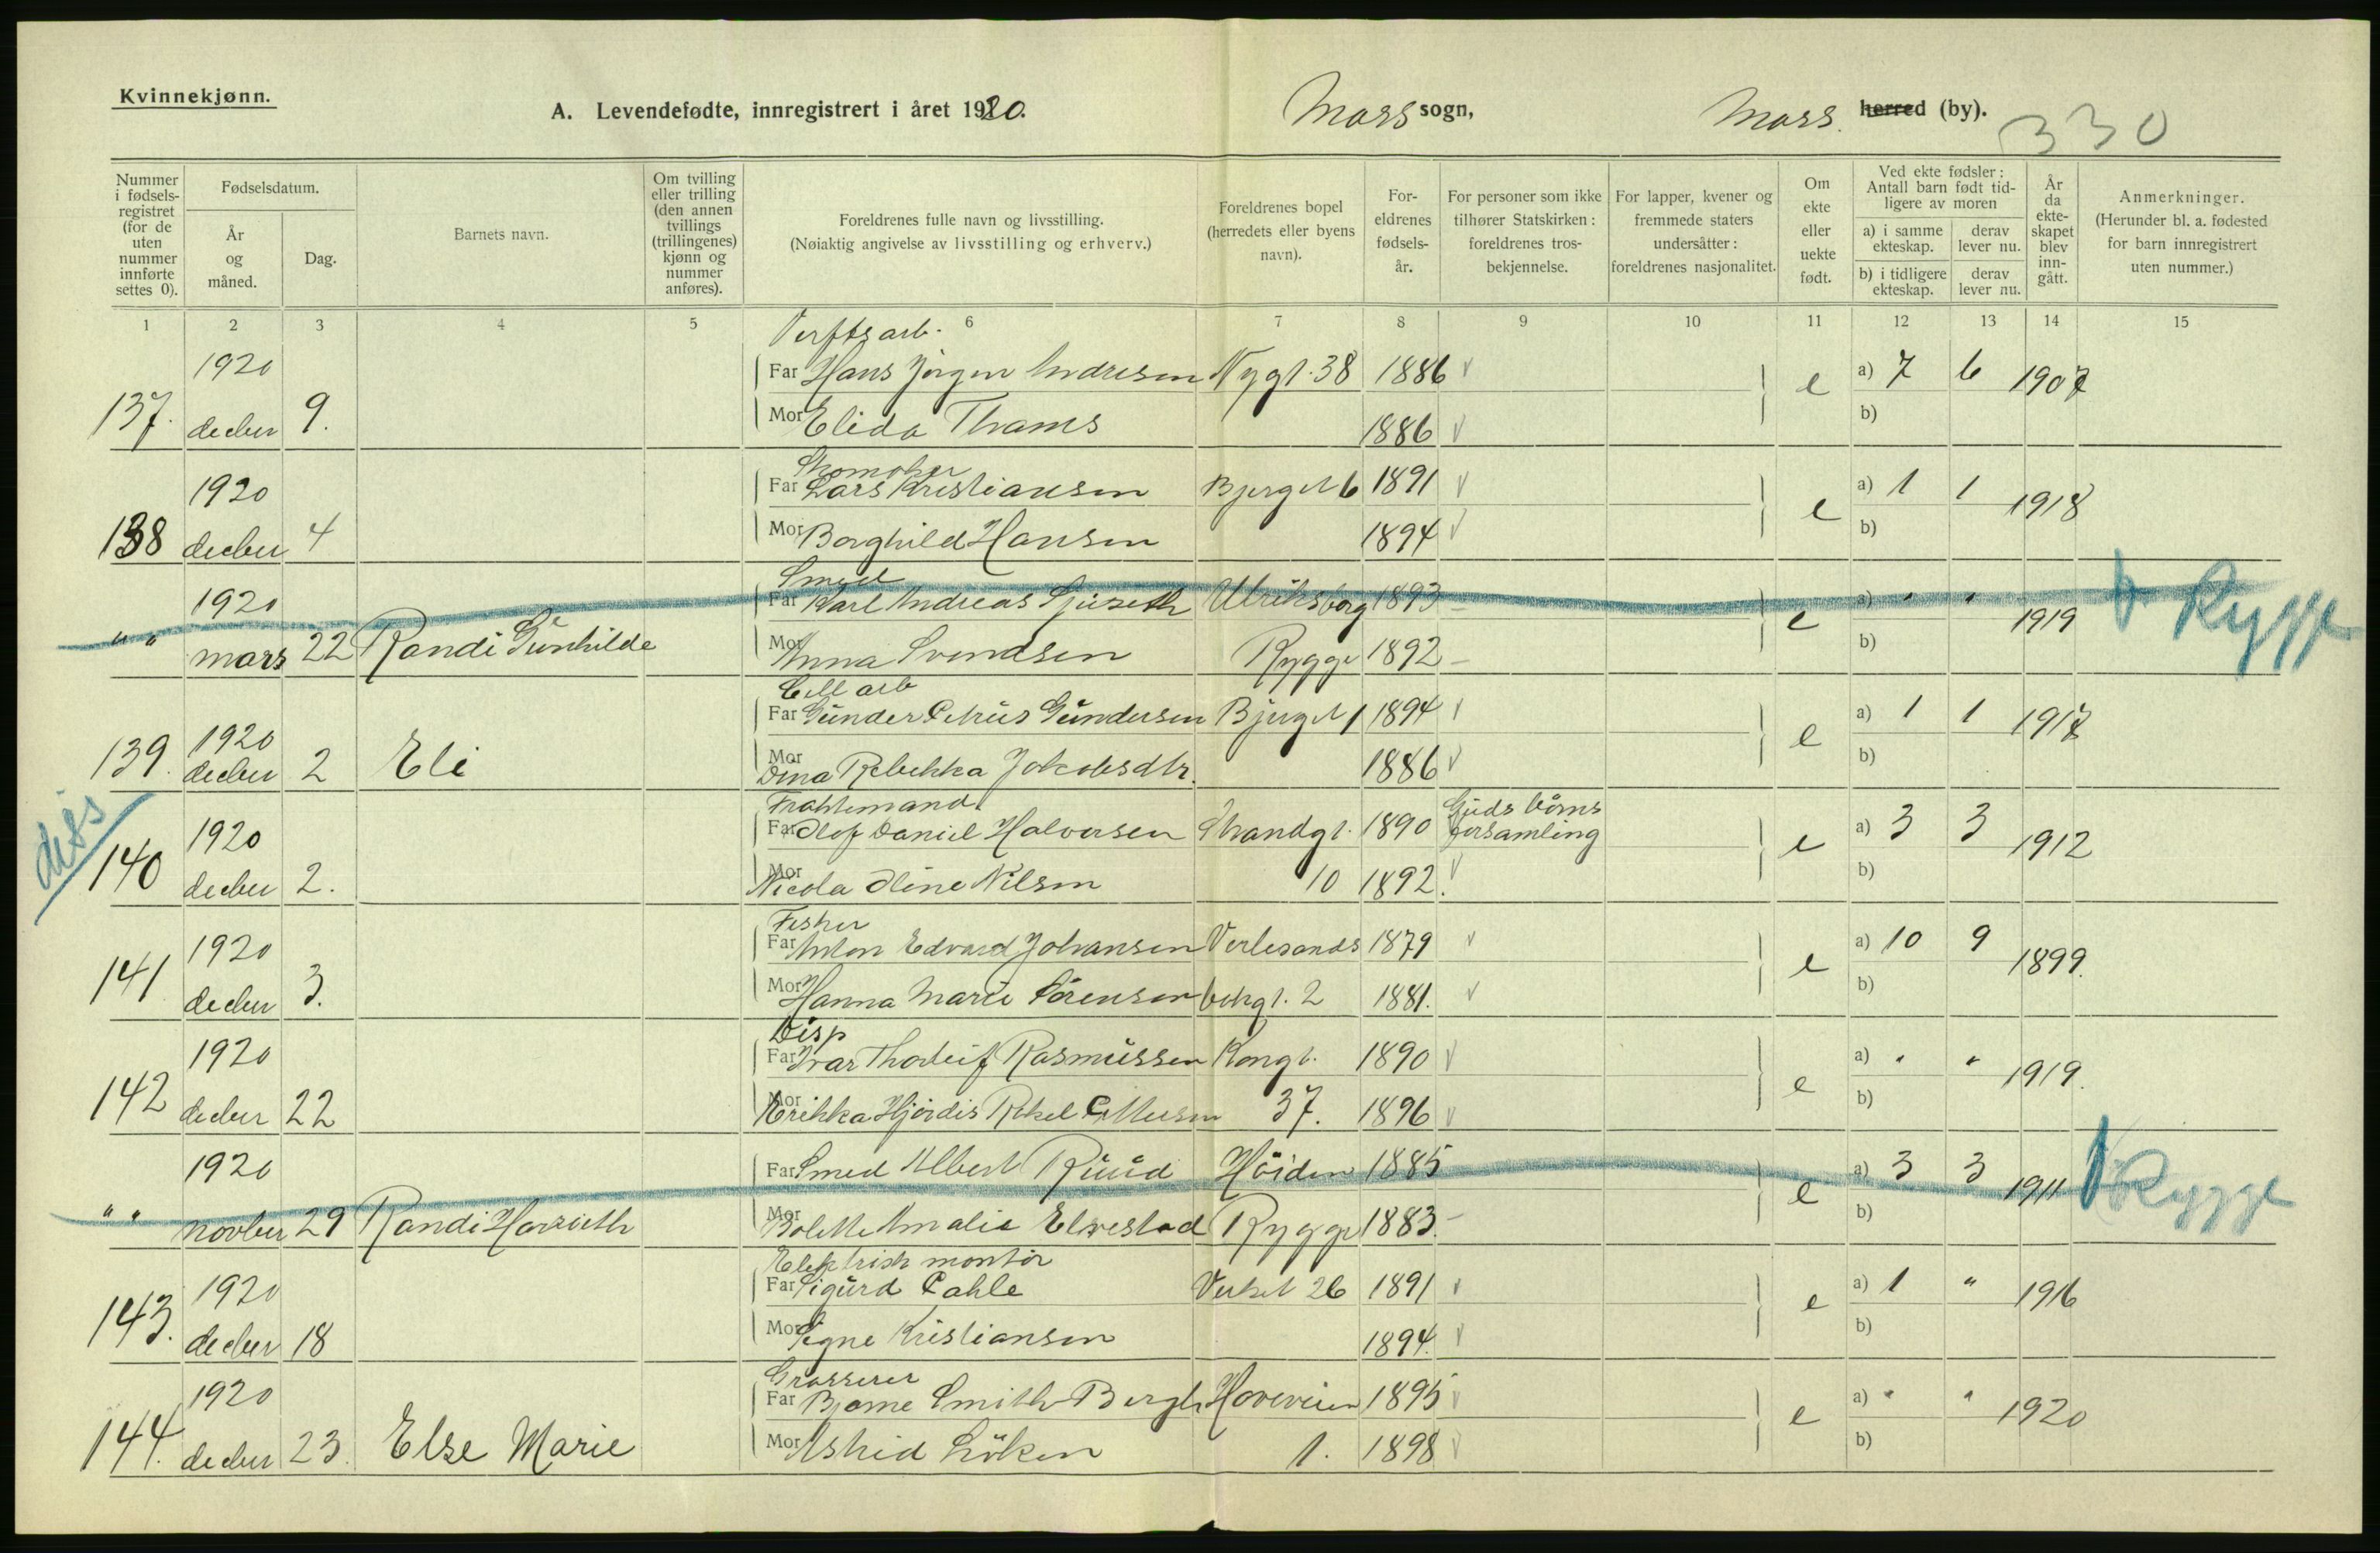 Kvinnekjønn.
A. Levendefødte, innregistrert i året 1920. Moss sogn, Moss. herred (by).
330
Nummer i fødsels-registret (for de uten nummer innførte settes 0).
Fødselsdatum.
År og måned.
Dag.
Barnets navn.
Om tvilling eller trilling (den annen tvillings (trillingenes) kjønn og nummer anføres).
Foreldrenes fulle navn og livsstilling.
(Nøiaktig angivelse av livsstilling og erhverv.)
Foreldrenes bopel (herredets eller byens navn).
For-eldrenes fødsels-år.
For personer som ikke tilhører Statskirken: foreldrenes tros-bekjennelse.
For lapper, kvener og fremmede staters undersåtter: foreldrenes nasjonalitet.
Om ekte eller uekte født.
Ved ekte fødsler: Antall barn født tid-ligere av moren
a) i samme ekteskap.
derav lever nu.
b) i tidligere ekteskap.
derav lever nu.
År da ekte-skapet blev inn-gått.
Anmerkninger.
(Herunder bl. a. fødested for barn innregistrert uten nummer.)
1 2 3 4 5 6 7 8 9 10 11 12 13 14 15
Verftsarb.
1920 Far Hans Jørgen Andresen Nygt. 38 1886 e a) 7 6 1907
137. decber 9. Mor Elida Thams 1886 b)
Skomaker
1920 Far Lars Kristiansen Bjerget 6 1891 e a) 1 1 1918
138 decber 4 Mor Borghild Hansen 1894 b)
Smed
1920 Far Karl Andreas Ulriksborg 1893 e a) " " 1919 Rygge
" " mars 22 Randi Gunhilde Mor Anna Svendsen Rygge 1892 b)
Cell arb
1920 Far Gunder Petrus Gundersen Bjerget 1 1894 e a) 1 1 1917
139. decber 2 Eli Mor Dina Rebekka Jakobsdtr. 1886 b)
diss
Fragtemand
1920 Far Olof Daniel Halvorsen Strandgt. 1890 Guds børns forsamling e a) 3 3 1912
140 decber 2. Mor Nicola Oline Nilsen 10 1892. b)
Fisker
1920 Far Anton Edvard Johansen Verlesands 1879 e a) 10 9 1899.
141 decber 3. Mor Hanna Marie Sørensen bekgt. 2 1881. b)
Disp
1920 Far Ivar Thorleif Rasmussen Kongt. 1890 e a) " " 1919.
142 decber 22 Mor Erikka Hjördis Rakel 37. 1896 b)
1920 Far Smed Albert Ruud Höiden 1885 e a) 3 3 1911 Rygge
" " novber 29 Randi Harrieth Mor Bolette Amalie Elvestad Rygge 1883. b)
Elektrisk montör
1920 Far Sigurd Pahle Verket 26 1891 e a) 1 " 1916
143. decber 18 Mor Signe Kristiansen 1894. b)
Grosserer
1920 Far Bjarne Smith-Bergh Hoveveien 1895 e a) " " 1920
144. decber 23. Else Marie Mor Astrid Löken 1. 1898 b)